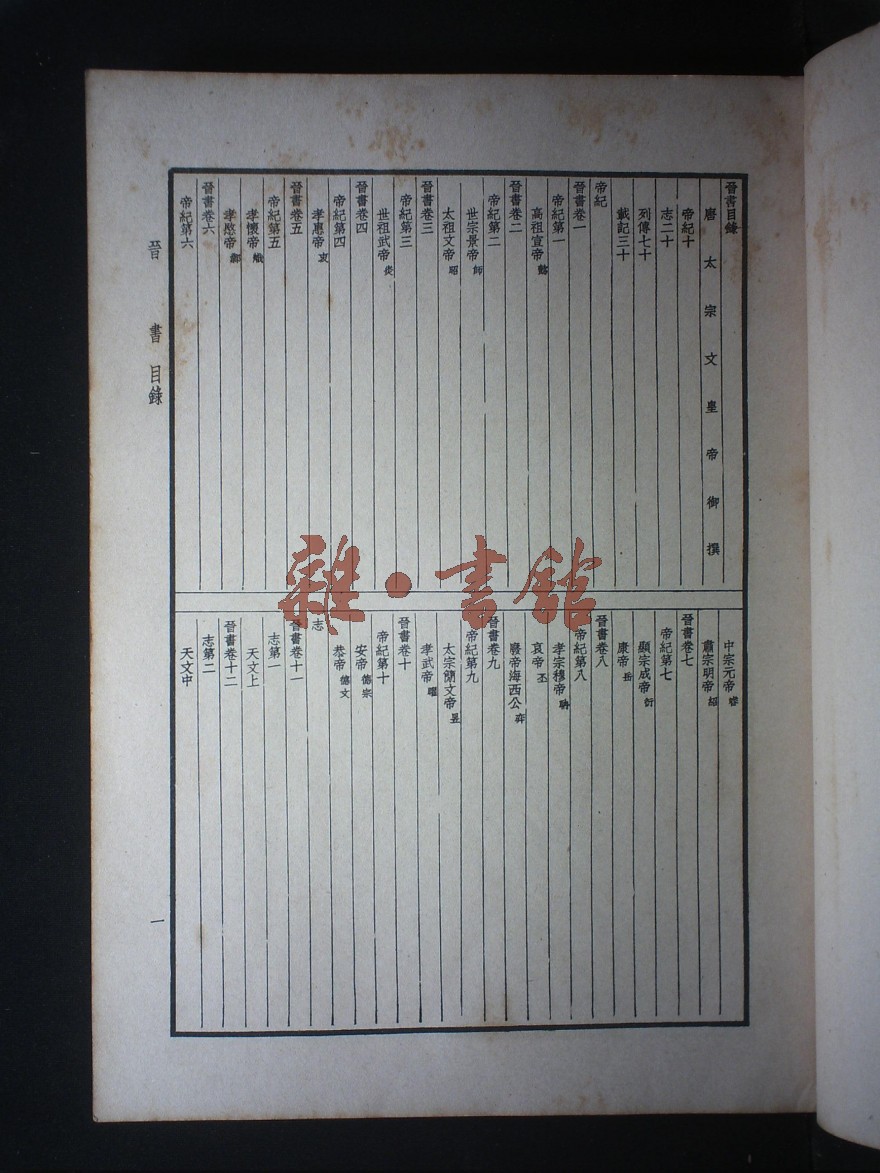 晉書目錄
唐太宗文皇帝御撰
帝紀十
志二十
列傳七十
載記三十
帝紀
晉書卷一
帝紀第一
高祖宣帝 懿
晉書卷二
帝紀第二
世宗景帝 師
太祖文帝 昭
晉書卷三
帝紀第三
世祖武帝 炎
晉書卷四
帝紀第四
孝惠帝 衷
晉書卷五
帝紀第五
孝懷帝 熾
孝愍帝 鄴
晉書卷六
帝紀第六
中宗元帝 睿
肅宗明帝 紹
晉書卷七
帝紀第七
顯宗成帝 衍
康帝 岳
晉書卷八
帝紀第八
孝宗穆帝 聃
哀帝 丕
廢帝海西公 弈
晉書卷九
帝紀第九
太宗簡文帝 昱
孝武帝 曜
晉書卷十
帝紀第十
安帝 德宗
恭帝 德文
志
晉書卷十一
志第一
天文上
晉書卷十二
志第二
天文中
晉書 目錄
一
雜·書館